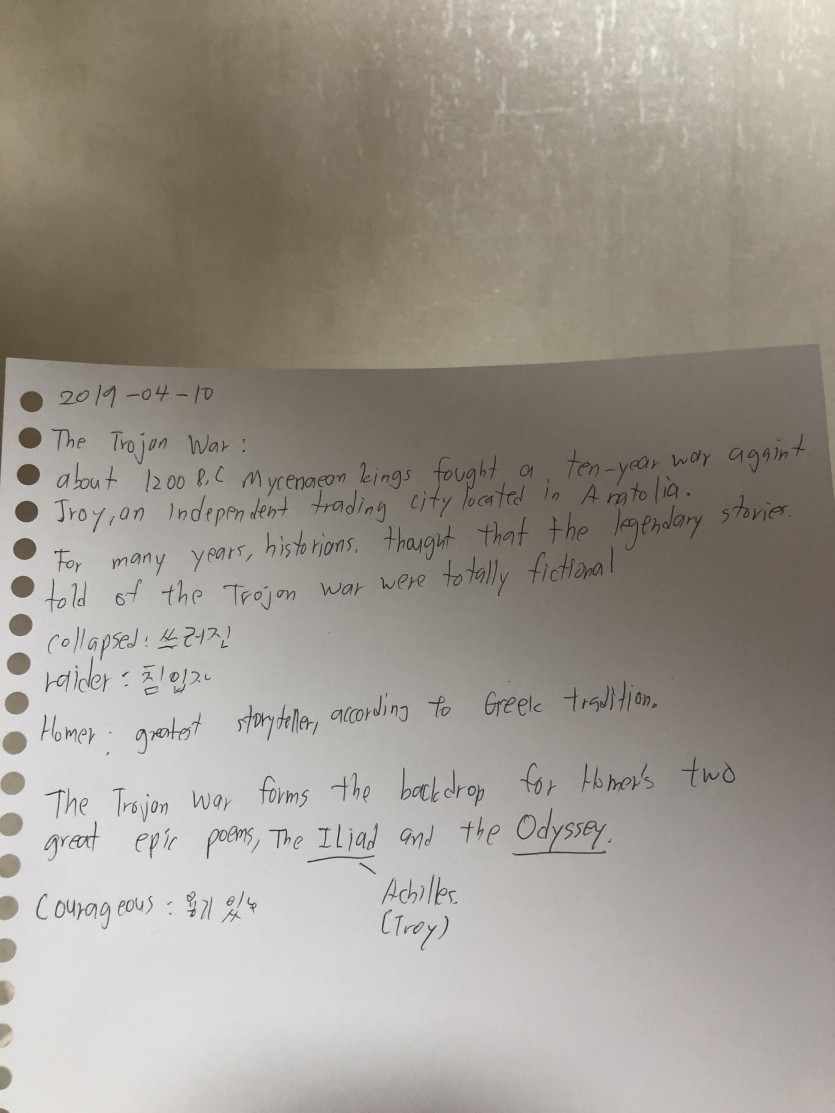 2019-04-10
The Trojan War:
about 1200 B.C Mycenaeon kings fought a ten-year war againt
Troy, an Independent trading city located in Anatolia.
For many years, historians. thought that the legendary stories.
told of the Trojan war were totally fictional
collapsed: 쓰러진
raider: 침입자
Homer: greatest storyteller, according to Greek tradition.
The Trojan War forms the backdrop for Homer's two
great epic poems, The Iliad and the Odyssey.
Achilles.
(Troy)
Courageous: 용기 있는